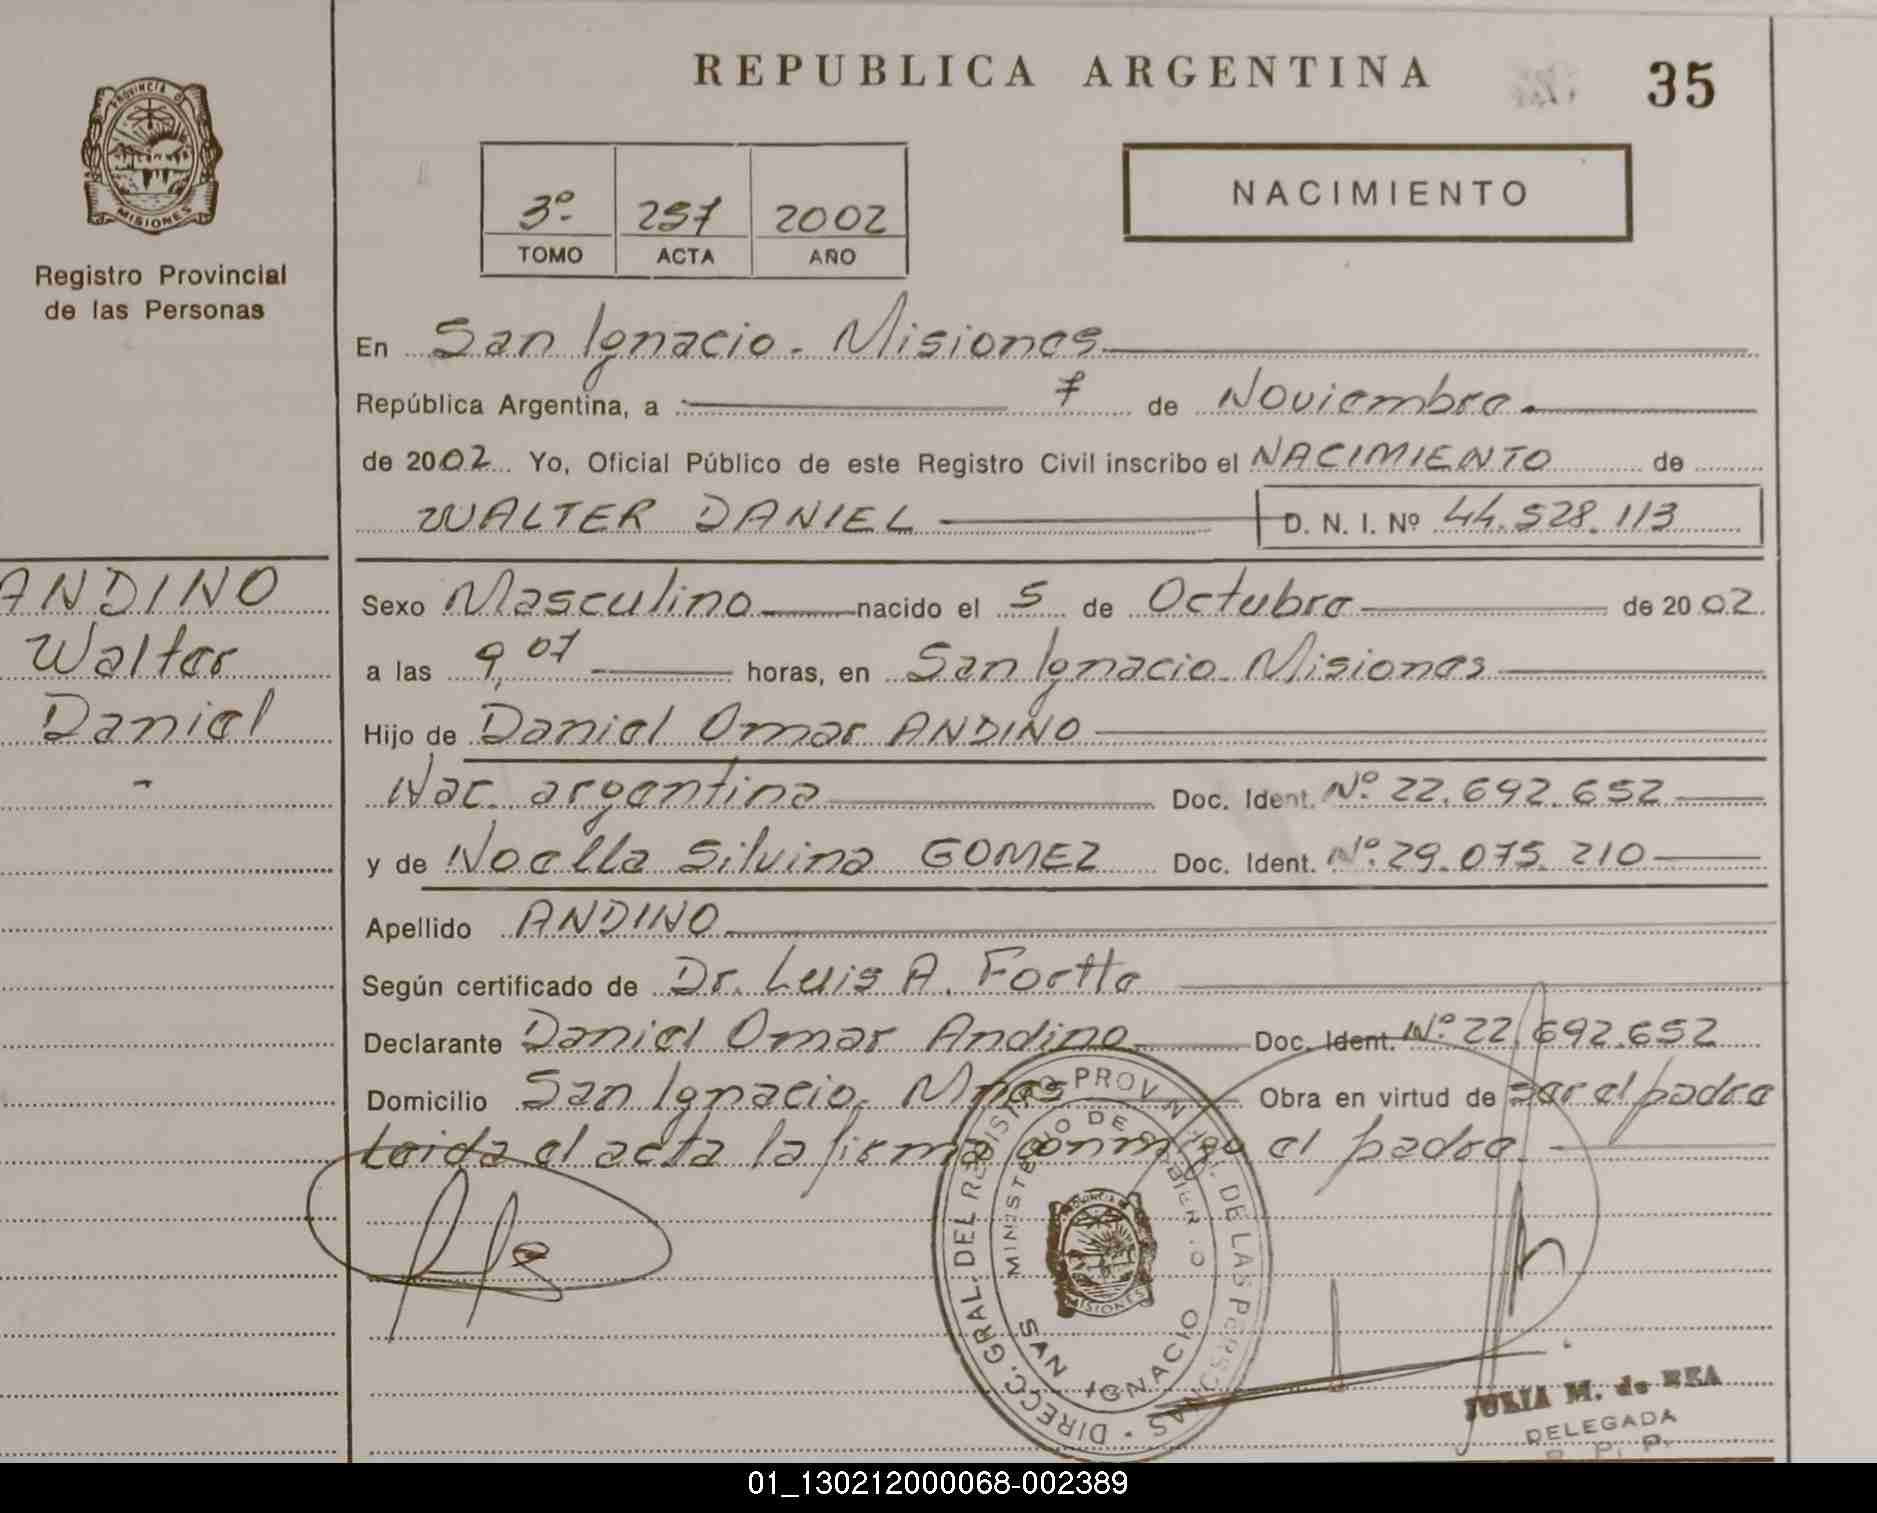 REPUBLICA ARGENTINA
35
PROVINCIA D
MISIONES
Registro Provincial
de las Personas
3º 257 2002
TOMO ACTA AÑO
NACIMIENTO
En San Ignacio - Misiones
República Argentina, a 7 de Noviembre
de 2002 Yo, Oficial Público de este Registro Civil inscribo el NACIMIENTO de
WALTER DANIEL D. N. I. Nº 44.528.113
ANDINO
Walter
Daniel
-
Sexo Masculino nacido el 5 de Octubre de 2002.
a las 9,07 horas, en San Ignacio - Misiones
Hijo de Daniel Omar ANDINO
Nac. argentina Doc. Ident. Nº 22.692.652
y de Noelia Silvina GOMEZ Doc. Ident. Nº 29.075.210
Apellido ANDINO
Según certificado de Dr. Luis A.
Declarante Daniel Omar Andino Doc. Ident. Nº 22.692.652
Domicilio San Ignacio, Mnes Obra en virtud de ser el padre
Leida el acta la firma conmigo el padre
DIRECC. GRAL. DEL REGISTRO PROVINCIAL DE LAS PERSONAS
MINISTERIO DE GOBIERNO
MISIONES
SAN IGNACIO
JULIA M. de REA
DELEGADA
R. P. P.
01_130212000068-002389